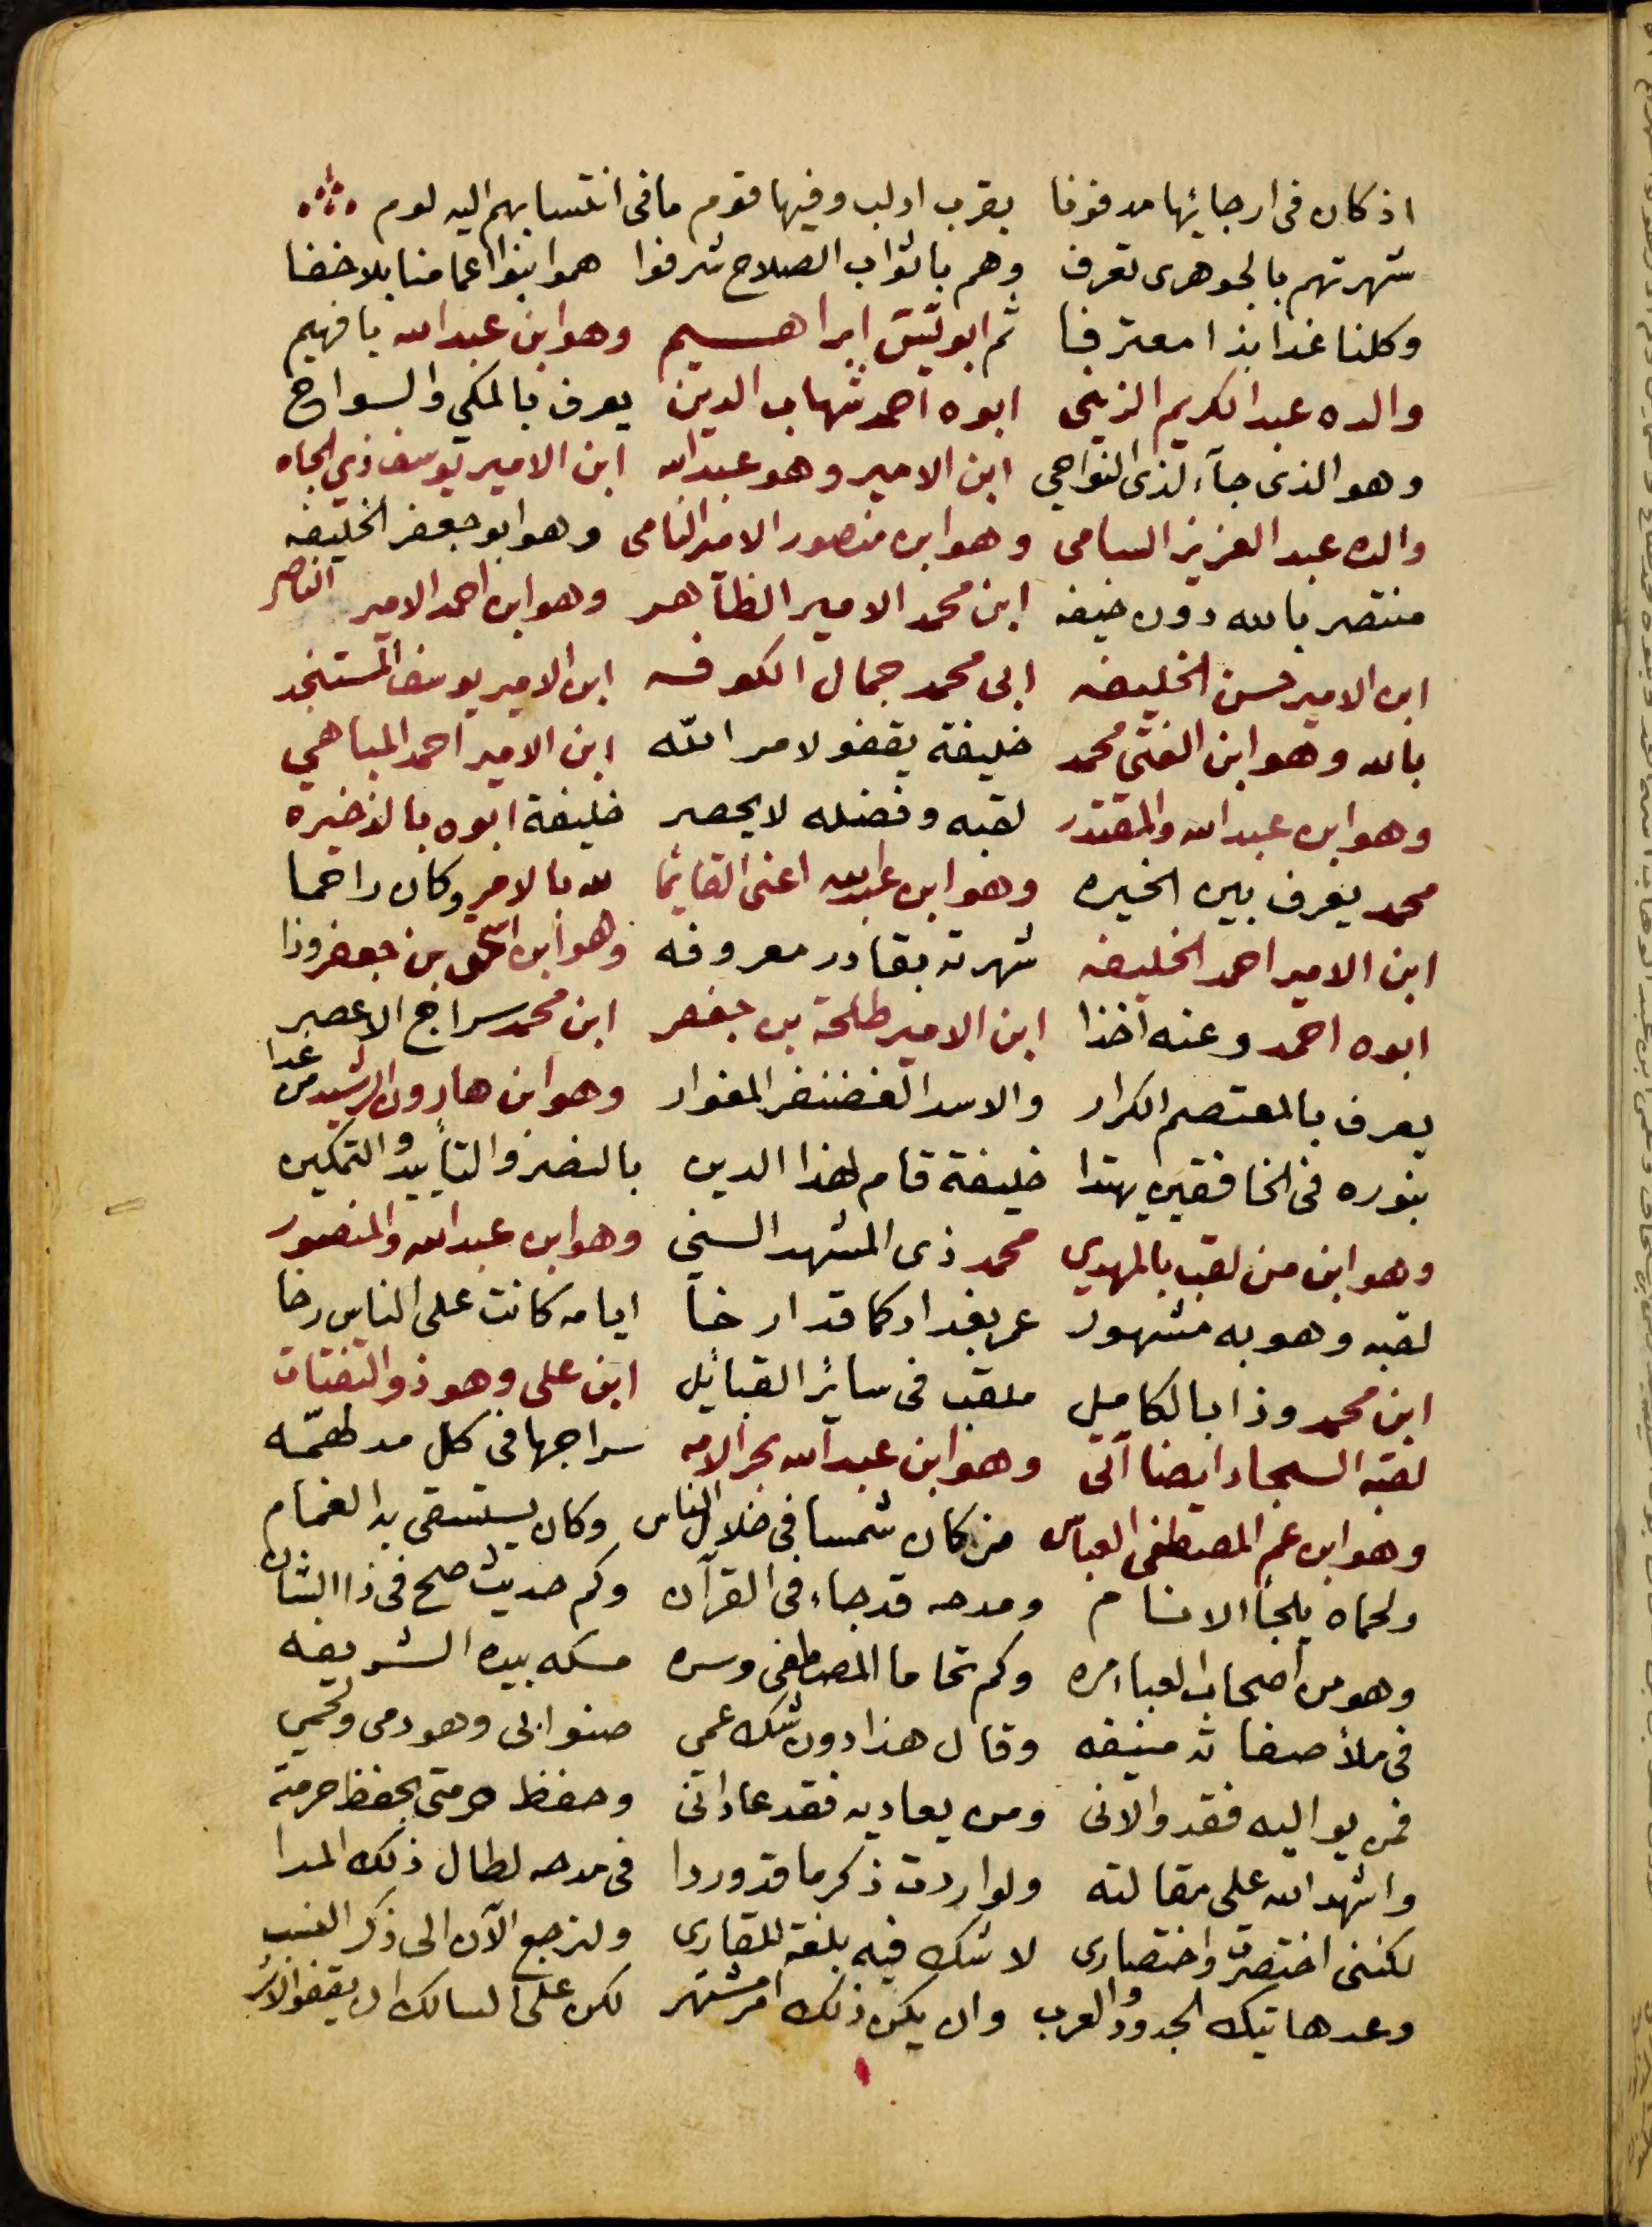 اذ كان فى ارجائها مدفونا بقرب ادلب وفيها قوم ما فى انتسابهم اليه لوم
شهرتهم بالجوهرى تعرف وهم باثواب الصلاح شرفوا هموا بنوا اعمامنا بلا خفا
وكلنا غدا بذا معترفا ثم ابو تيتى ابراهيم وهو ابن عبد الله يا فهيم
والده عبد الكريم الزينى ابوه احمد شهاب الدين يعرف بالمكي والسواح
وهو الذى جآء لذى النواحي ابن الامير وهو عبد الله ابن الامير يوسف ذي الجاه
والده عبد العزيز السامى وهو ابن منصور الامير النامى وهو ابو جعفر الخليفه
منتصر بالله دون خيفه ابن محمد الامير الظاهر وهو ابن احمد الامير الناصر
ابن الامير حسن الخليفه ابى محمد جمال الكوفه ابن الامير يوسف المستنجد
بالله وهو ابن الفتى محمد خليفة يقفو لامر الله ابن الامير احمد المباهي
وهو ابن عبد الله والمقتدر لقبه وفضله لا يحصر خليفة ابوه بالذخيره
محمد يعرف بين الخيره وهو ابن عبد الله اعنى القائما لله بالامر وكان راحما
ابن الامير احمد الخليفه شهرته بقادر معروفه وهو ابن اسحق بن جعفر وذا
ابوه احمد وعنه اخذا ابن الامير طلحة بن جعفر ابن محمد سراج الاعصر
يعرف بالمعتصم الكرار والاسد الغضنفر المغوار وهو ابن هارون الرشيد من غدا
بنوره فى الخافقين يهتدا خليفة قام لهذا الدين بالنصر والتأييد والتمكين
وهو ابن من لقب بالمهدي محمد ذى المشهد السني وهو ابن عبد الله والمنصور
لقبه وهو به مشهور عمر بغداد كما قد ارخا ايامه كانت على الناس رخا
ابن محمد وذا بالكامل ملقب فى سائر القبائل ابن على وهو ذو الثفنات
لقبه السجاد ايضا آتى وهو ابن عبد الله بحر الامه سراجها فى كل مدلهمّه
وهو ابن عم المصطفى العباس من كان شمسا فى ظلال الناس وكان يستسقى به الغمام
ولحماه يلجأ الانام ومدحه قد جاء فى القرآن وكم حديث صح فى ذا الشان
وهو من اصحاب العبا امره وكم تحاما المصطفى وسره مسكه بيده الشريفه
فى ملأ صفاته منيفه وقال هذا دون شك عمي صنو ابى وهو دمى ولحمي
فمن يواليه فقد والانى ومن يعاديه فقد عادانى وحفظ حرمتى بحفظ حرمته
واشهد الله على مقالته ولو اردت ذكر ما قد وردا فى مدحه لطال ذلك المدا
لكننى اختصرت واختصارى لا شك فيه بلغة للقارى ولنرجع الآن الى ذكر النسب
وعد هاتيك الجدود والعرب وان يكن ذلك امر مشتهر لكن على السالك ان يقفو الاثر